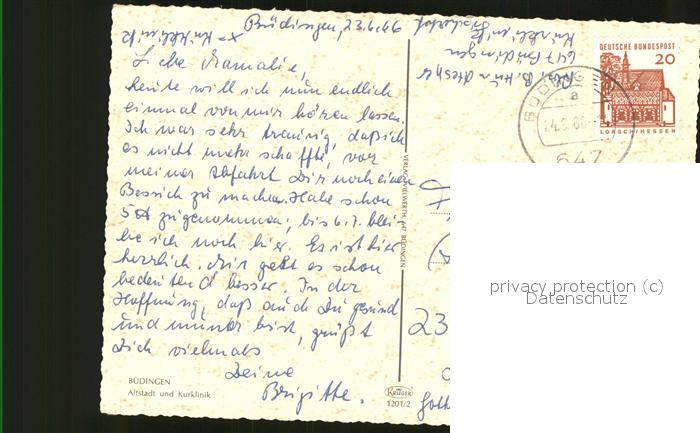 Büdingen, 23.6.66
x = Kurklinik
Liebe Ramalie,
heute will ich nun endlich
einmal von mir hören lassen.
Ich war sehr traurig, daß ich
es nicht mehr schaffte, vor
meiner Abfahrt Dir noch einen
Besuch zu machen. Habe schon
zugenommen; bis 6.7. blei-
be ich noch hier. Es ist hier
herrlich. Mir geht es schon
bedeutend besser. In der
Hoffnung, daß auch Du gesund
und munter bist, grüßt
Dich vielmals
Deine
Brigitte.
BÜDINGEN
Altstadt und Kurklinik
Abs. B.
647 Büdingen
Kurklinik
DEUTSCHE BUNDESPOST
20
LORSCH/HESSEN
BÜDINGEN
a
647
23
1201/2
privacy protection (c)
Datenschutz